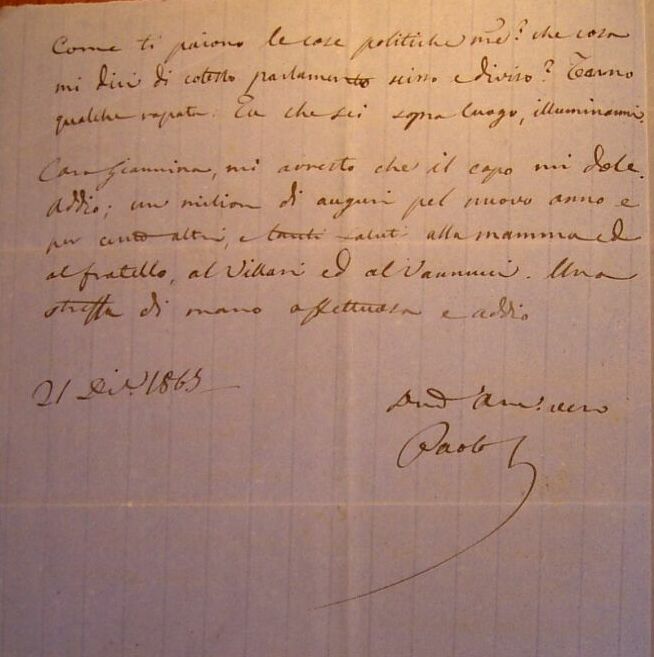 Come ti paiono le cose politiche che cosa
mi dici di cotesto parlamento scisso e diviso?
qualche Tu che sei sopra luogo, illuminami.
Cara Giannina, mi arresto che il capo mi dole.
Addio; un milion di auguri pel nuovo anno e
per cento altri, e tanti saluti alla mamma ed
al fratello, al Villari ed al Vannucci. Una
stretta di mano affettuosa e addio
21 1865
vero
Paolo